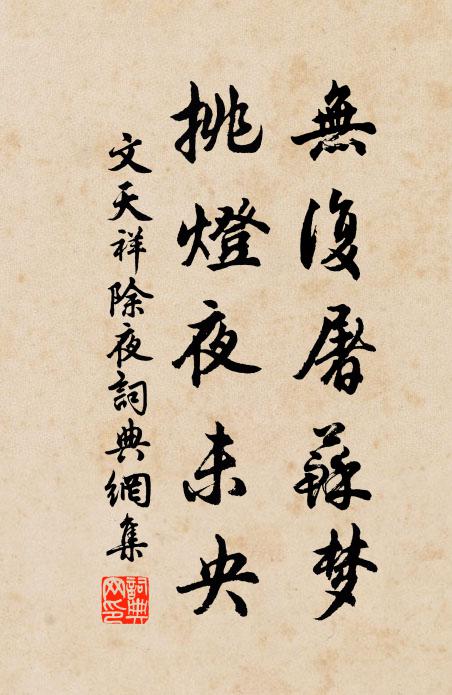 無復屠蘇梦
挑燈夜未央
文天祥除夜詞典網集
詞典网印